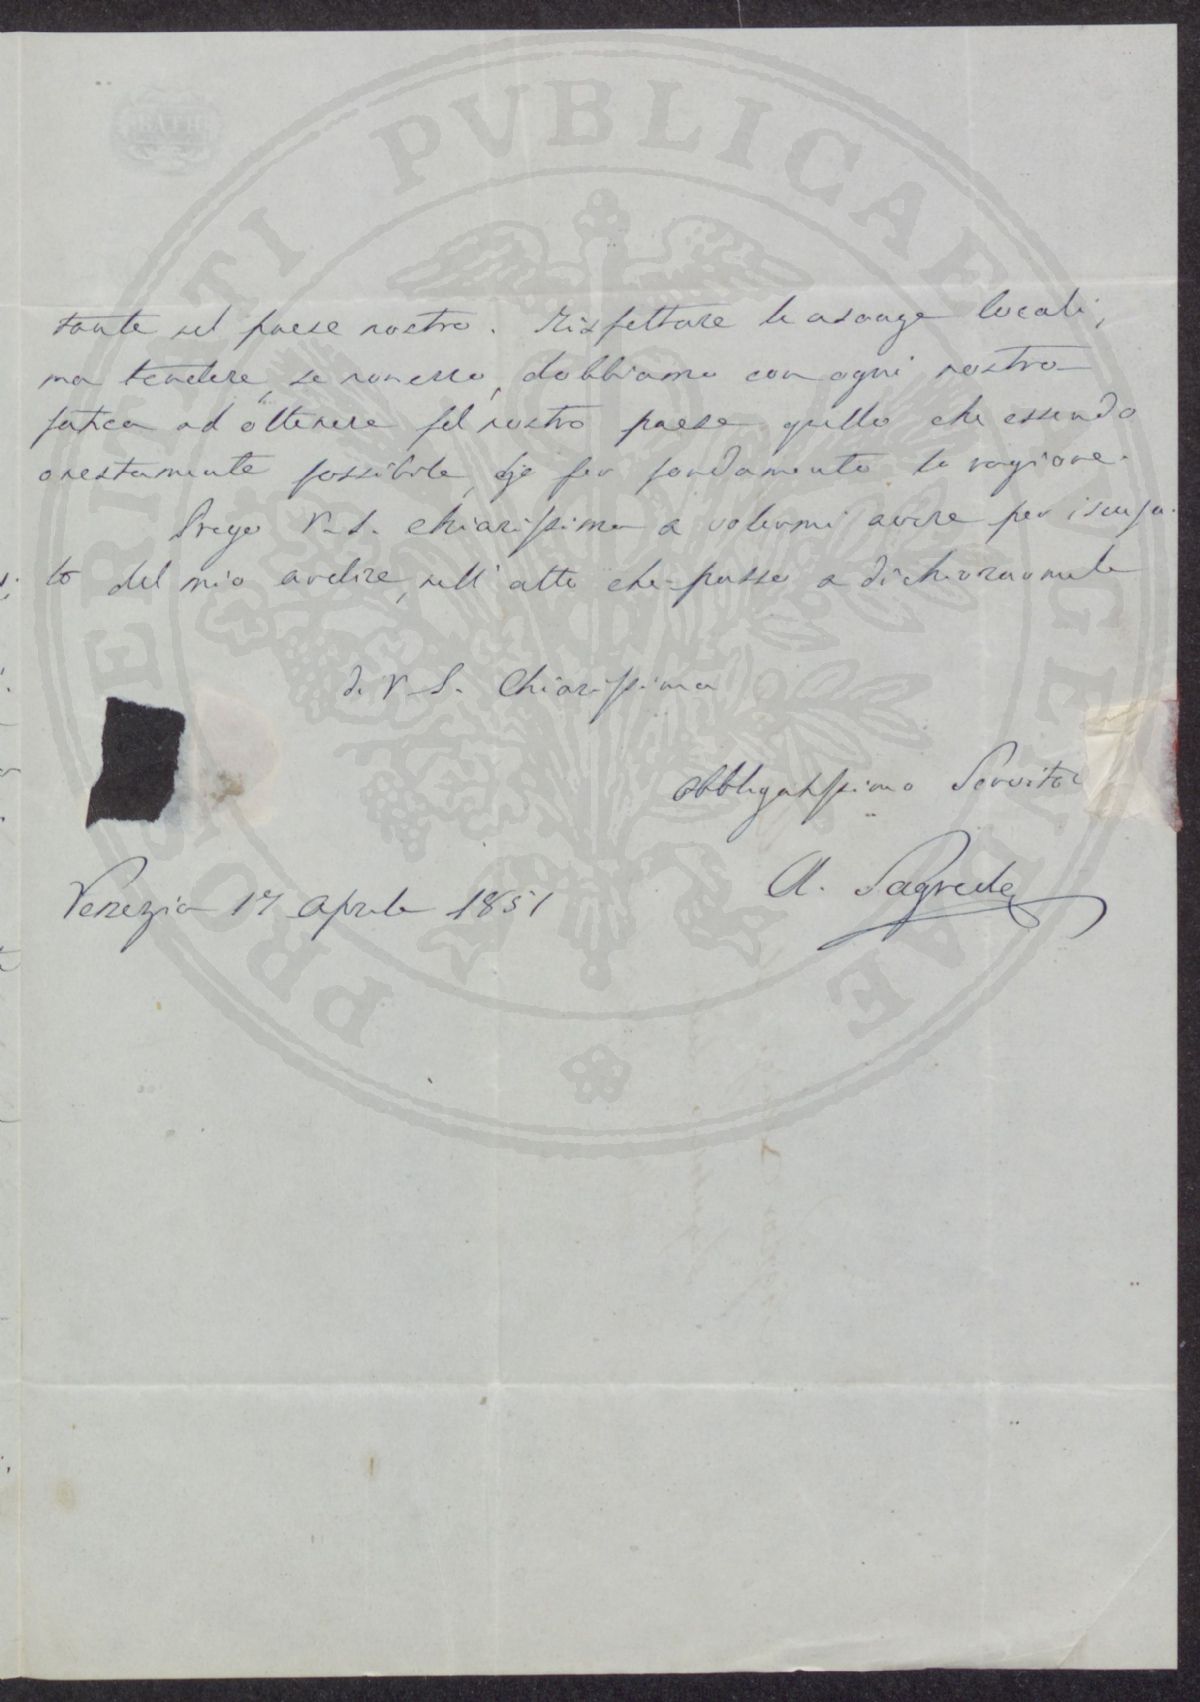 BATH
PROSPERITATI PVBLICAE AVGENDAE
tante nel paese nostro. Rispettare le usanze locali,
ma tendere, se non erro, dobbiamo con ogni nostra
fatica ad ottenere pel nostro paese quello che essendo
onestamente possibile, ha per fondamento la ragione.
Prego V. S. Chiarissima a volermi avere per iscusa-
to del mio ardire, nell' atto che passo a dichiararmele
di V. S. Chiarissima
obbligatissimo Servitor
A. Sagredo
Venezia 17 Aprile 1851